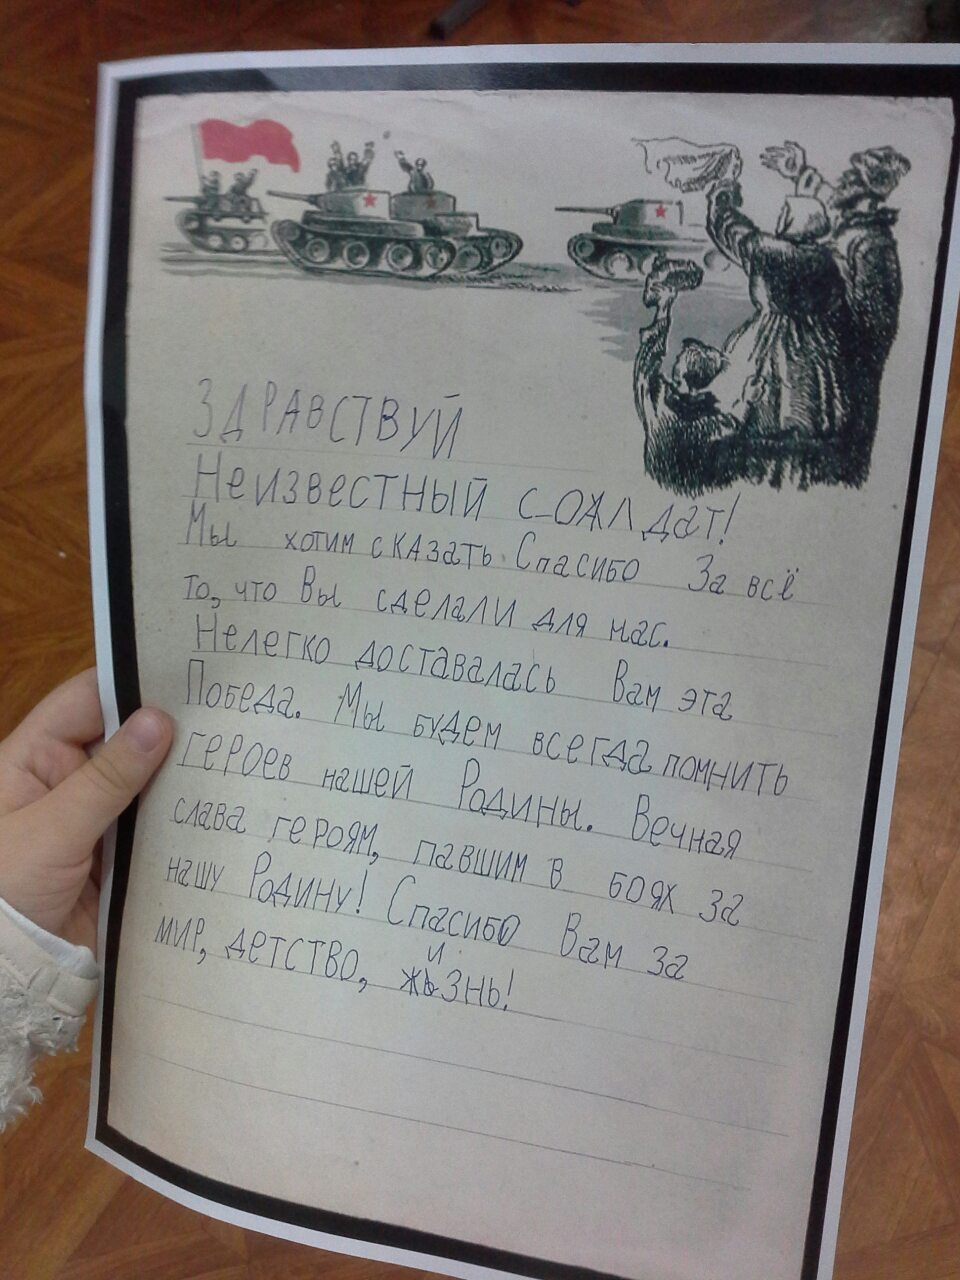 ЗДРАВСТВУЙ
Неизвестный солдат!
Мы хотим сказать Спасибо За всё
то, что Вы сделали для нас.
Нелегко доставалась Вам эта
Победа. Мы будем всегда помнить
героев нашей Родины. Вечная
слава героям, павшим в боях за
нашу Родину! Спасибо Вам за
мир, детство, жизнь!